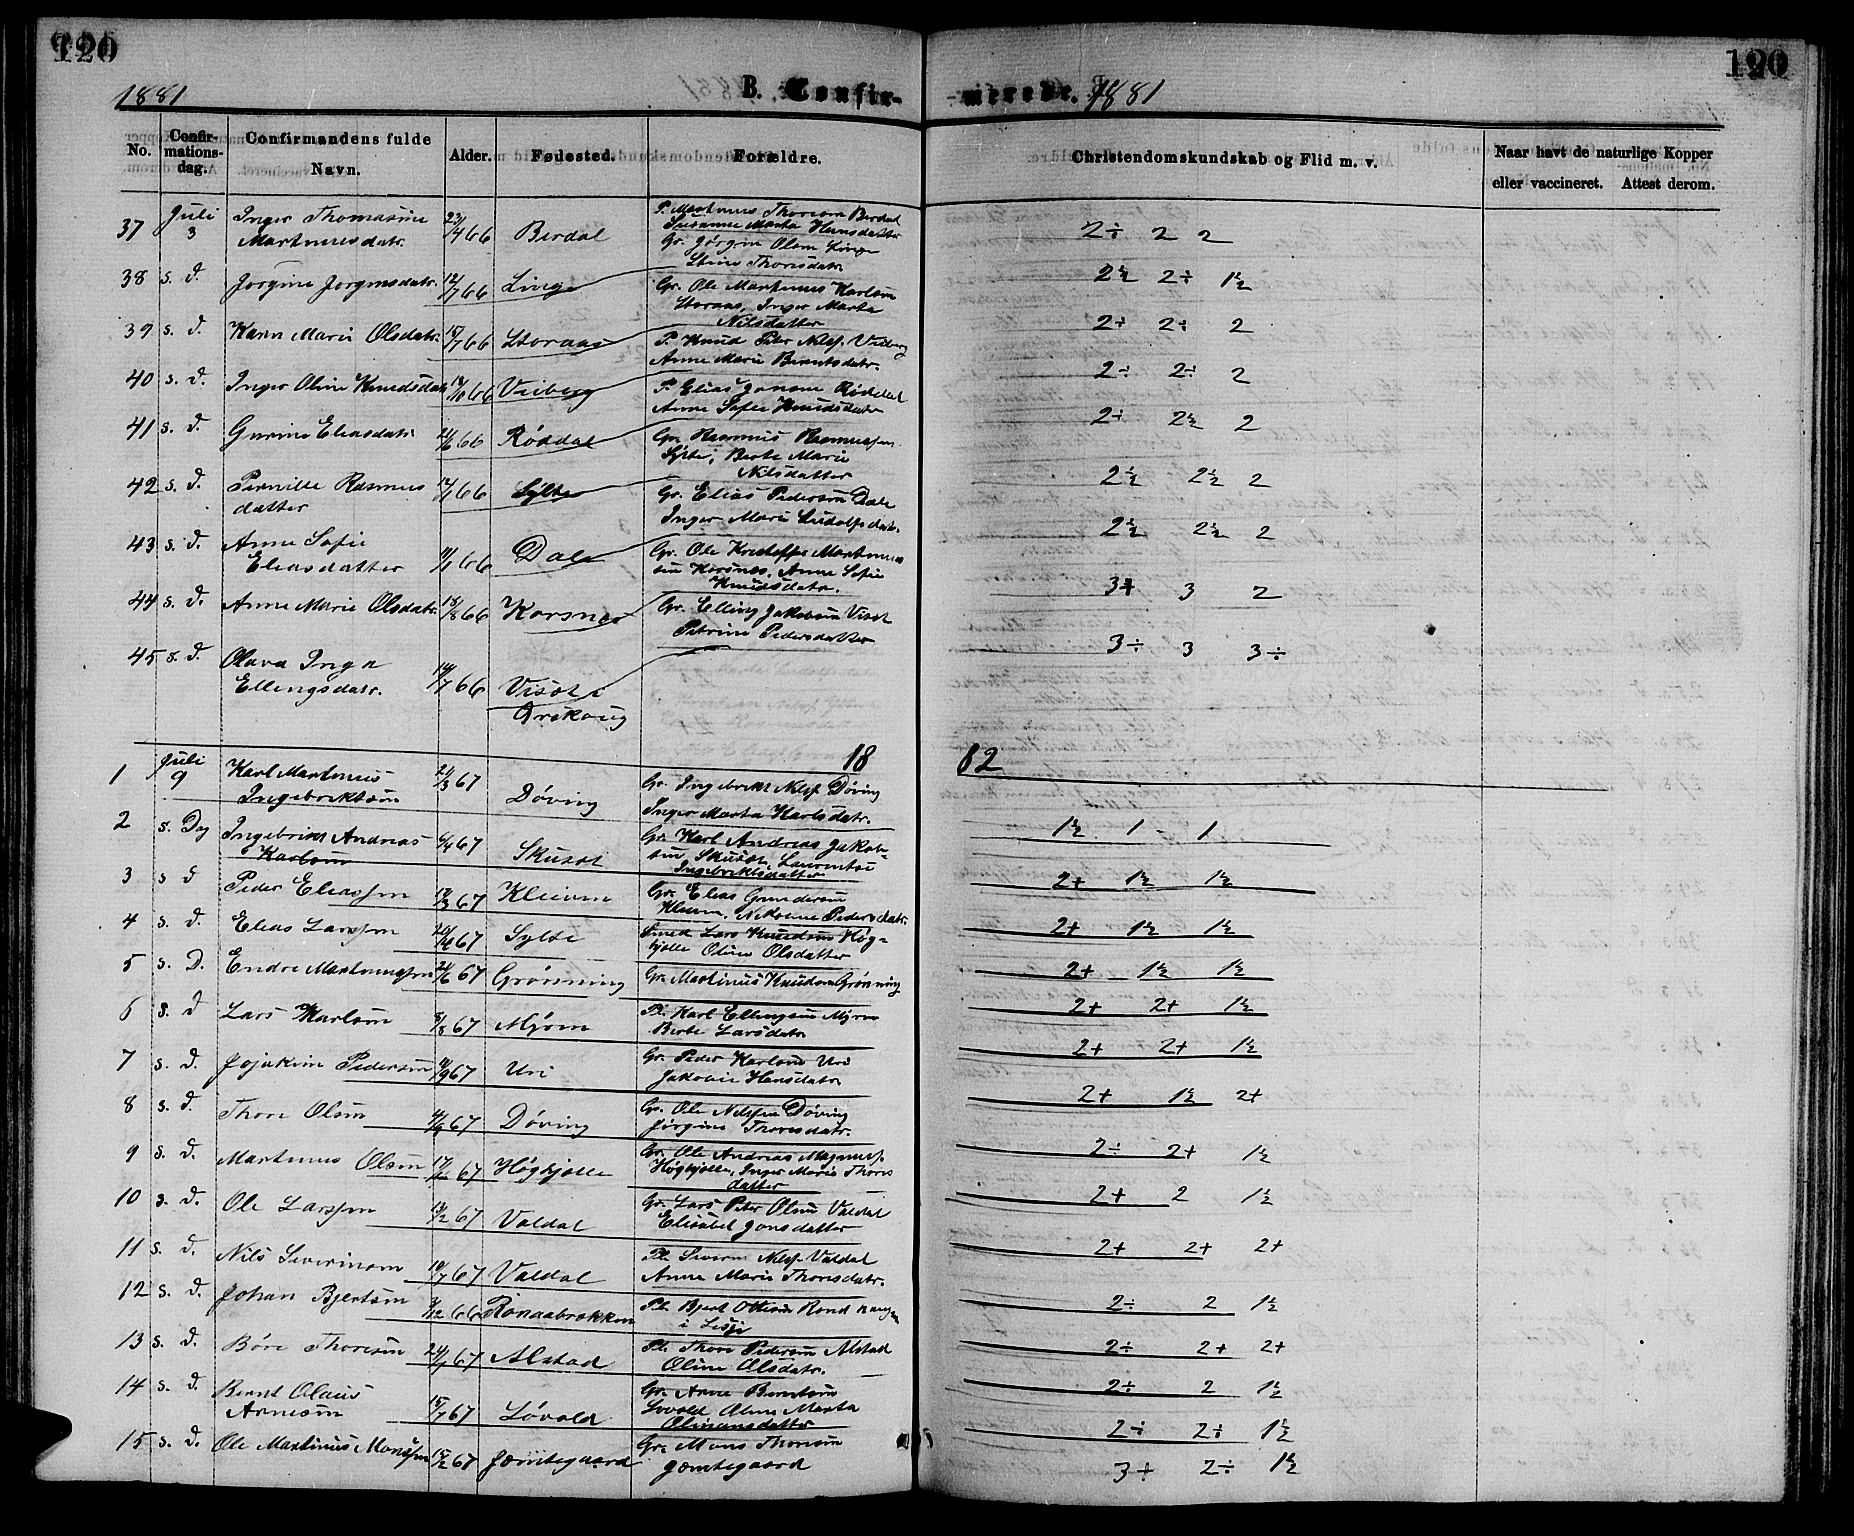 120
120
1881
B. Confir-
merede. 1881
No.
Confir-
mations-
dag.
Confirmandens fulde
Navn.
Alder.
Fødested.
Forældre.
Christendomskundskab og Flid m. v.
Naar havt de naturlige Kopper
eller vaccineret. Attest derom.
37 Juli 3 Inger Thomasine Martinusdatr. 23/4 66 Berdal
P. Martinus Thoresen Berdal
Susanne Marta Hansdatter
2÷ 2 2
38 s. d. Jørgine Jørginsdatr. 12/7 66 Linge
Gr. Jørgin Olsen Linge
Stine Thoresdatr.
2½ 2÷ 1½
39 s. d. Karen Marie Olsdatr. 15/7 66 Storaas
Gr. Ole Martinus Karlsen
Storaas, Inger Marta
Nilsdatter
2÷ 2÷ 2
40 s. d. Inger Oline Knudsdatr. 66
P. Knud Peder Nilss.
Anne Marie Berntsdatr.
2÷ 2÷ 2
41 s. d. Gurine Eliasdatr. 66 Røddal
P. Elias Jonsen Røddal
Anne Sofie Knudsdatr.
2÷ 2½ 2
42 s. d. Pernille Rasmus
datter 66 Sylte
Gr. Rasmus Rasmussen
Sylte, Berte Marie
Nilsdatter
2½ 2½ 2
43 s. d. Anne Sofie
Eliasdatter 66 Dale
Gr. Elias Pedersen Dale
Inger Marie Ludolfsdatr.
2½ 2½ 2
44 s. d. Anne Marie Olsdatr. 66 Korsnes
Gr. Ole Kristoffer Martinus
sen Korsnes, Anne Sofie
Knudsdatr.
3+ 3 2
45 s. d. Olava Inga
Ellingsdatr. 66
Ørskoug
Gr. Elling Jakobsen
Petrine Pedersdatter
3÷ 3 3÷
18 82
1 Juli 9 Karl Martinus
Ingebriktsen 21/3 67 Døving
Gr. Ingebrikt Nilss. Døving
Inger Marta Karlsdatr.
1½ 1 - 1
2 s. Dag Ingebrikt Andreas
Karlsen 67
Gr. Karl Andreas Jakob-
sen
Ingebriktsdatter
2+ 1½ 1½
3 s d Peder Eliassen 67 Kleiven
Gr. Elias Gundersen
Kleiven, Nikoline Pedersdatr.
2+ 1½ 1½
4 s. d. Elias Larssen 67 Sylte
Smed Lars Knudsen Høg-
kjølle Oline Olsdatter
2+ 1½ 1½
5 s. D. Endre Martinussen 67 Grønning
Gr. Martinus Knudsen Grønning
2+ 2+ 1½
6 s. d Lars Karlsen 8/8 67 Myren
Pl. Karl Ellingsen Myren
Berte Larsdatr.
2+ 2+ 1½
7 s. d. Jojakim Pedersen 67 Uri
Gr. Peder Karlsen Uri
Jakobie Hansdatr.
2+ 1½ 2+
8 s. d. Thore Olsen 67 Døving
Gr. Ole Nilssen Døving
Jørgine Thoresdatr.
2÷ 2+ 1½
9 s. d. Martinus Olsen 67 Høgkjølle
Gr. Ole Andreas
Høgkjølle, Inger Marie Thores
datter
2+ 2 1½
10 s. d. Ole Larssen 67 Valdal
Gr. Lars Peter Olsen Valdal
Elisabet Jonsdatter
2+ 2+ 2+
11 s. d. Nils Severinsen 10/7 67 Valdal
Pl. Severin Nilss. Valdal
Anne Marie Thoresdatr.
2÷ 2 1½
12 s. d. Johan Bjertsen 66
Pl. Bjert Ottesen
i Lesje
2÷ 2+ 2+
13 s. d. Thoresen 67 Alstad
Pl. Thore Pedersen Alstad
Oline Olsdatr.
2÷ 2 1½
14 s. d. Bernt Olaus
Arnesen 15/7 67 Løvold
Gr. Arne Berntsen
Løvold Oline Marta
2÷ 2÷ 1½
15 s. d. Ole Martinus Monssen 15/2 67 Jemtegaard
Gr. Mons Thoresen
Jemtegaard
3+ 2÷ 1½